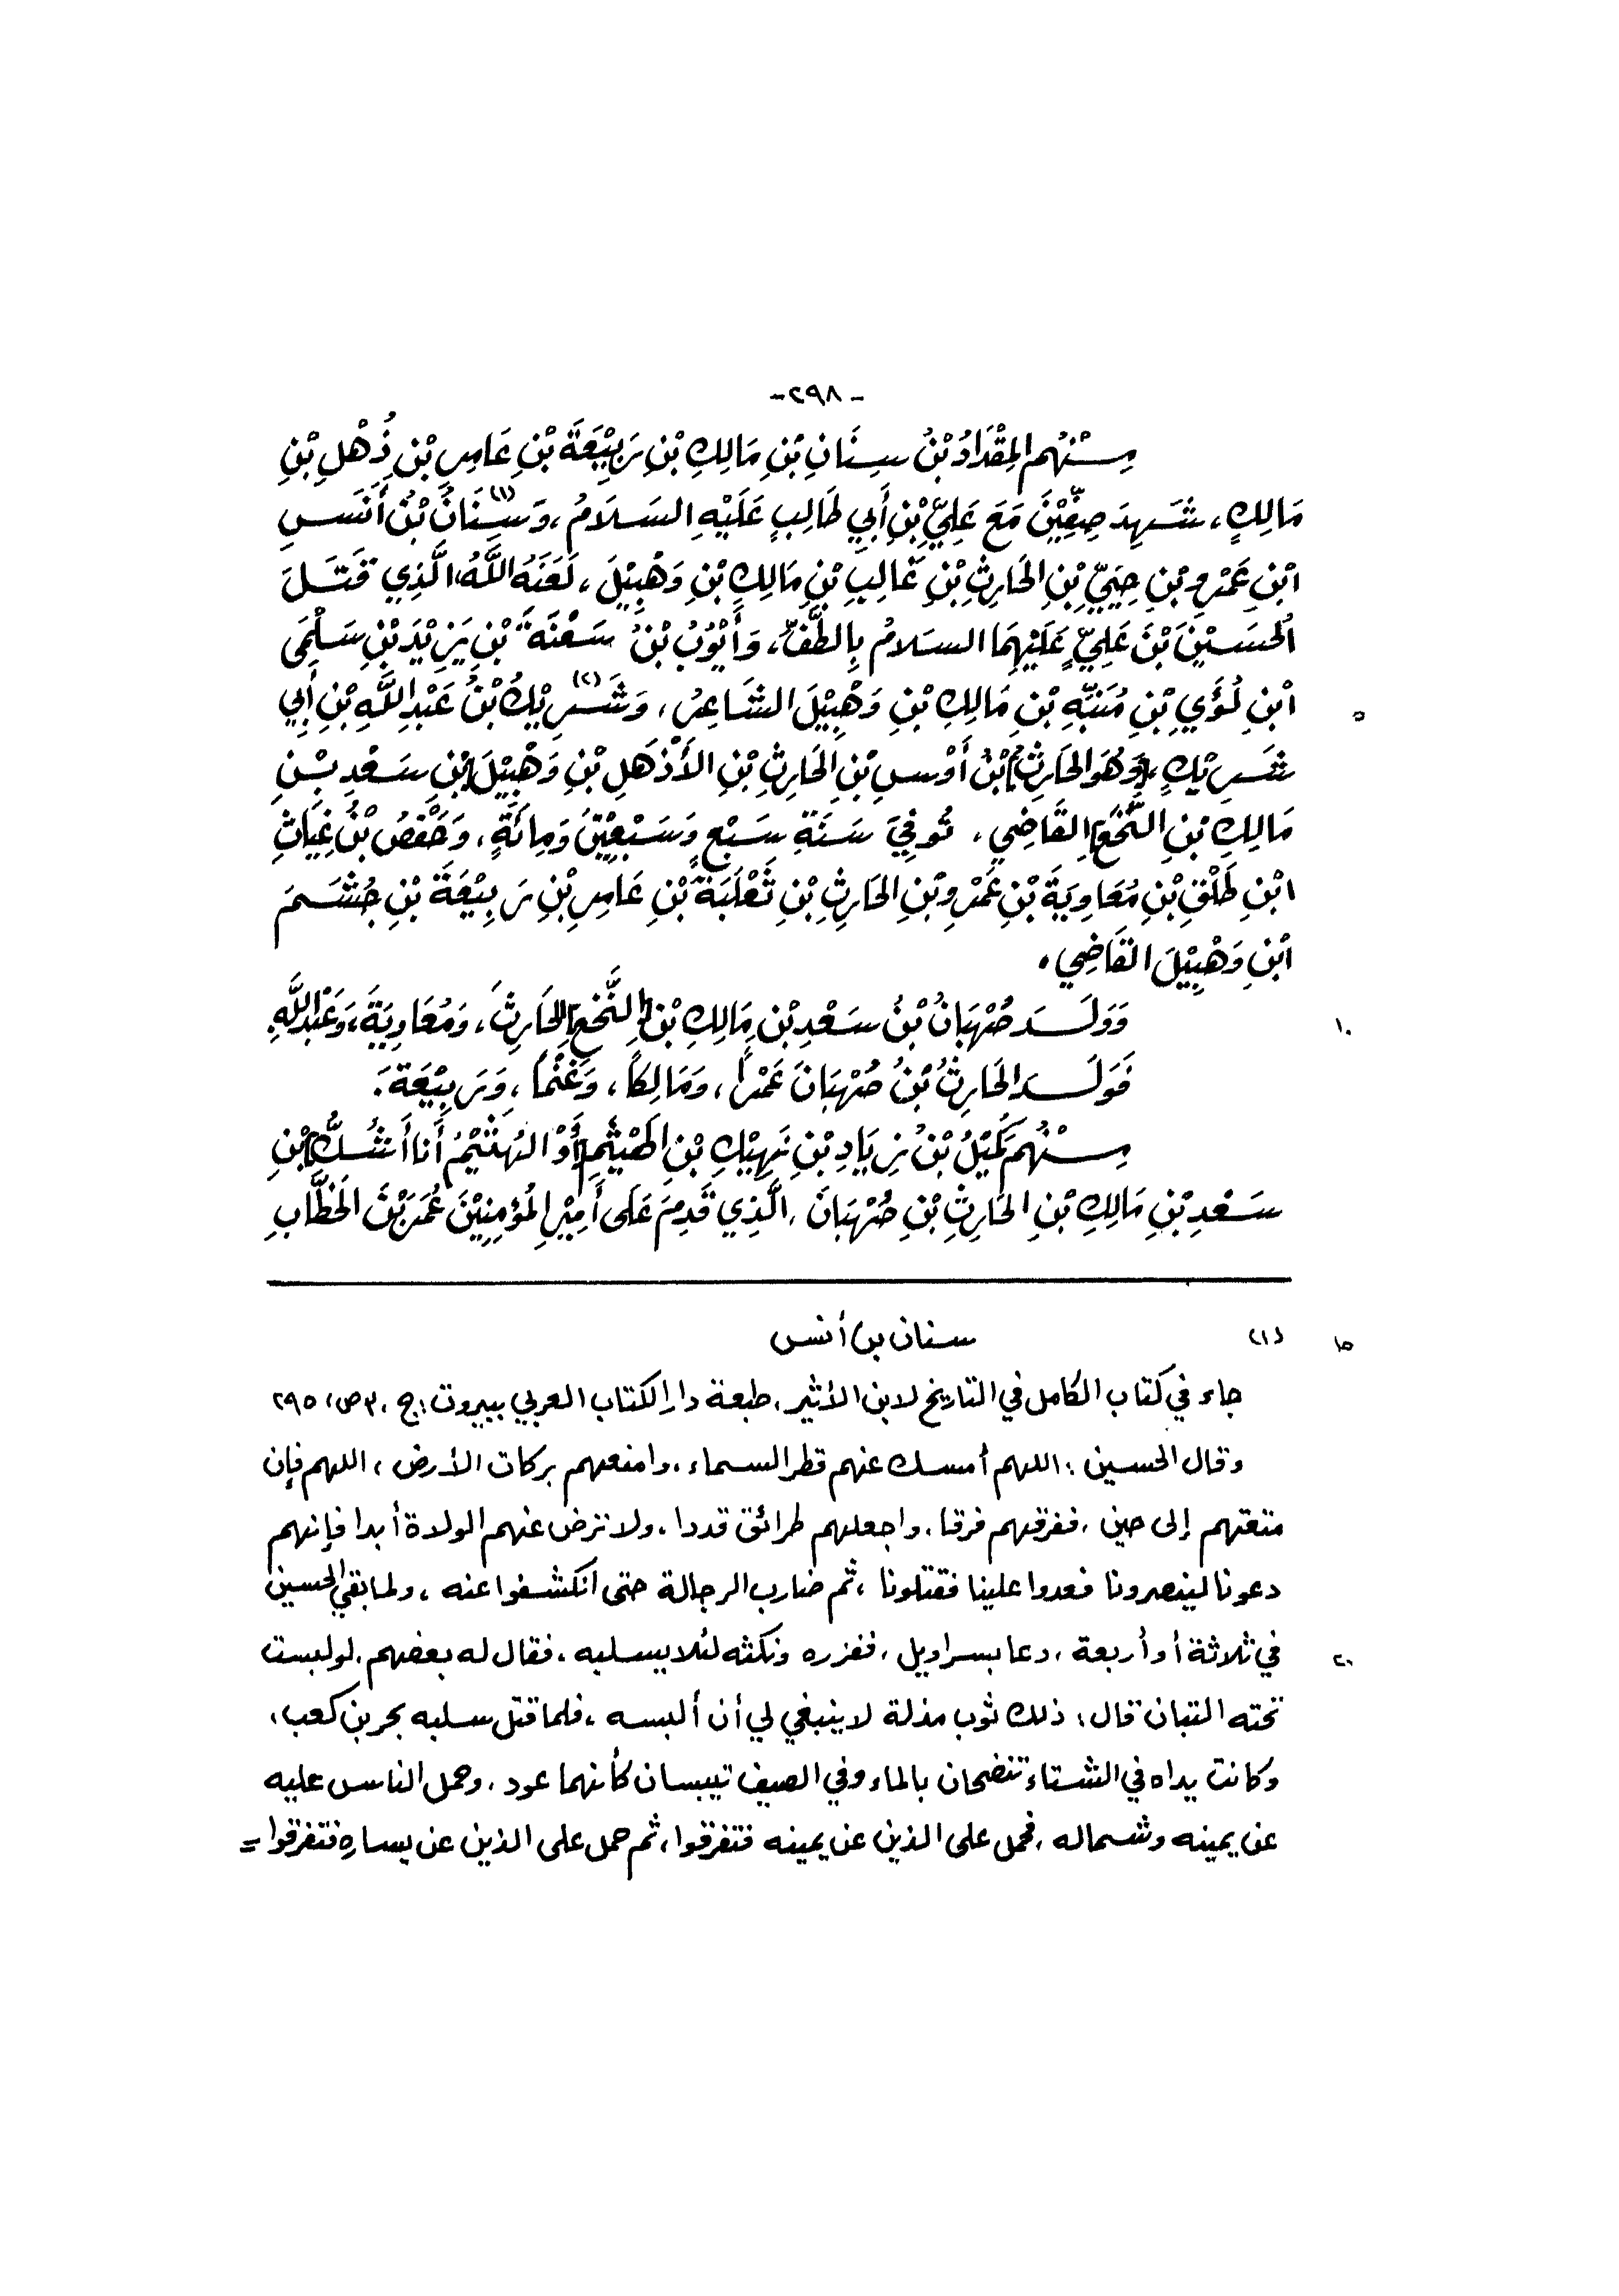 -٢٩٨-
مِنْهُم المِقْدَادُ بْنُ سِنَانِ بْنِ مَالِكِ بْنِ رَبِيْعَةَ بْنِ عَامِرِ بْنِ ذُهْلِ بْنِ
مَالِكٍ، شَهِدَ صِفِّيْنَ مَعَ عَلِيِّ بْنِ أَبِي طَالِبٍ عَلَيْهِ السَلَامُ، وَسِنَانُ(١) بْنُ أَنَسِ
ابْنِ عَمْرِو بْنِ حِيَيِّ بْنِ الحَارِثِ بْنِ غَالِبِ بْنِ مَالِكِ بْنِ وَهْبِيْلَ، لَعَنَهُ اللَّهُ، الَّذِي قَتَلَ
الحُسَيْنَ بْنَ عَلِيٍّ عَلَيْهِمَا السَلَامُ بِالطَّفِّ، وَأَيُّوْبُ بْنُ سَعْنَةَ بْنِ يَزِيْدَ بْنِ سَلْمَى
ابْنِ لُؤَيِ بْنِ مُنَبِّهِ بْنِ مَالِكِ بْنِ وَهْبِيْلَ الشَاعِرُ، وَشَرِيْكُ(٢) بْنُ عَبْدِ اللَّهِ بْنِ أَبِي
شَرِيْكٍ، [وَهُوَ الحَارِثُ] بْنُ أَوْسِ بْنِ الحَارِثِ بْنِ الأَذْهَلِ بْنِ وَهْبِيْلَ [بْنِ سَعْدِ بْنِ
مَالِكِ بْنِ النَّخَعِ] القَاضِي، تُوفِيَ سَنَةِ سَبْعٍ وَسَبْعِيْنَ وَمِائَةٍ، وَحَفْصُ بْنُ غِيَاثِ
ابْنِ طَلْقِ بْنِ مُعَاوِيَةَ بْنِ عَمْرِو بْنِ الحَارِثِ بْنِ ثَعْلَبَةَ بْنِ عَامِرِ بْنِ رَبِيْعَةَ بْنِ جُشَمَ
ابْنِ وَهْبِيْلَ القَاضِي.
وَوَلَدَ صُهْبَانُ بْنُ سَعْدِ بْنِ مَالِكِ بْنِ [النَّخَعِ] الحَارِثَ، وَمُعَاوِيَةَ، وَعَبْدَ اللَّهِ.
فَوَلَدَ الحَارِثُ بْنُ صُهْبَانَ عَمْراً، وَمَالِكاً، وَغَنْماً، وَرَبِيْعَةَ.
مِنْهُم كُمَيْلُ بْنُ زِيَادِ بْنِ نَهِيْكِ بْنِ الهَيْثَمِ [أَوْ النُهَثَيْمُ أَنا أَشُكُّ] بْنِ
سَعْدِ بْنِ مَالِكِ بْنِ الحَارِثِ بْنِ صُهْبَانَ، الَّذِي قَدِمَ عَلَى أَمِيْرِ المُؤمِنِيْنَ عُمَرَ بْنَ الخَطَّابِ
(١) سنان بن أنس
جاء في كتاب الكامل في التاريخ لابن الأثير، طبعة دار الكتاب العربي ببيروت: ج، ٣ ص، ٢٩٥
وقال الحسين: اللهم أمسك عنهم قطر السماء، وامنعهم بركات الأرض، اللهم فإن
متعتهم إلى حين، ففرقهم فرقا، واجعلهم طرائق قددا، ولا ترض عنهم الولاة أبدا فإنهم
دعونا لينصرونا فعدوا علينا فقتلونا، ثم ضارب الرجالة حتى انكشفوا عنه، ولما بقي الحسين
في ثلاثة أو أربعة، دعا بسراويل، ففزره ونكثه لئلا يسلبه، فقال له بعضهم، لو لبست
تحته التبان قال: ذلك ثوب مذلة لا ينبغي لي أن ألبسه، فلما قتل سلبه بحر بن كعب،
وكانت يداه في الشتاء تنضحان بالماء وفي الصيف تيبسان كأنهما عود، وحمل الناس عليه
عن يمينه وشماله، فحمل على الذين عن يمينه فتفرقوا، ثم حمل على الذين عن يساره فتفرقوا =
٥
١٠
١٥
٢٠